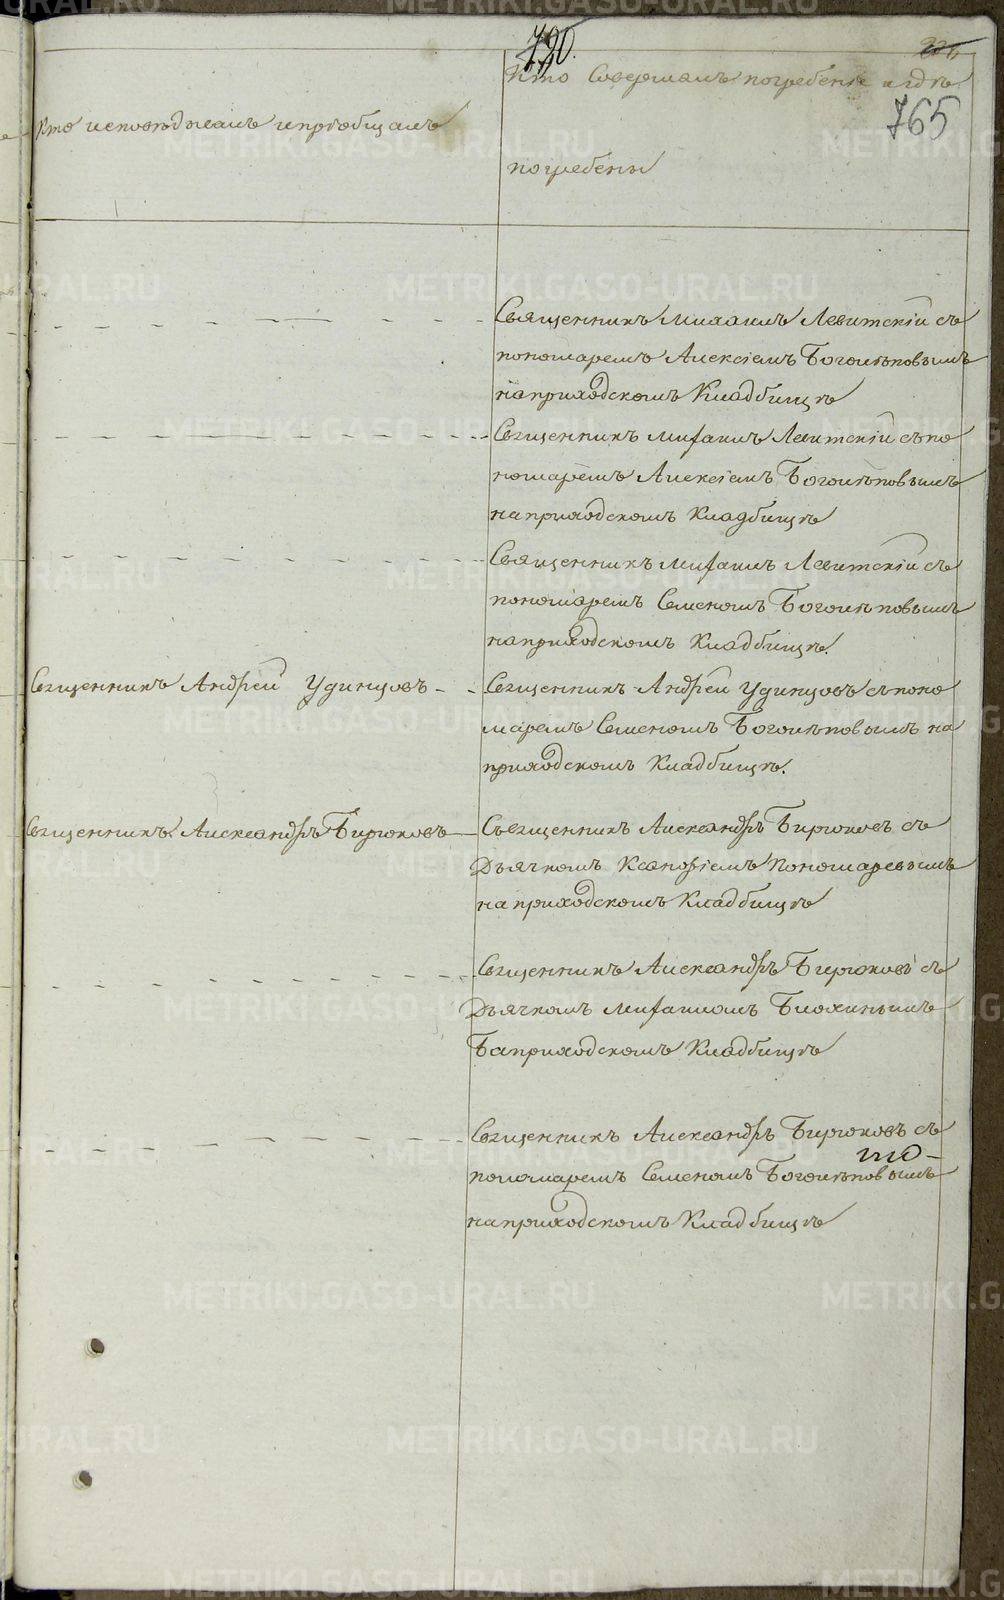 790.
765
Кто исповѣдывалъ и пріобщалъ
Кто Совершалъ погребеніе и гдѣ
погребены
Священникъ Михаилъ Левитскій съ
пономаремъ Алексіемъ Боголѣповымъ
на приходскомъ Кладбищѣ
Священникъ Михаилъ Левитскій съ по
номаремъ Алексіемъ Боголѣповымъ
на приходскомъ Кладбищѣ
Священникъ Михаилъ Левитскій съ
пономаремъ Семеномъ Боголѣповымъ
на приходскомъ Кладбищѣ.
Священникъ Андрей Удинцовъ
Священникъ Андрей Удинцовъ съ поно
маремъ Семеномъ Боголѣповымъ на
приходскомъ Кладбищѣ.
Священникъ Александръ Бирюковъ
Священникъ Александръ Бирюковъ съ
Дьячкомъ Пономаревымъ
на приходскомъ Кладбищѣ
Священникъ Александръ Бирюковъ съ
Дьячкомъ Михаиломъ Блохинымъ
на приходскомъ Кладбищѣ
Священникъ Александръ Бирюковъ съ
пономаремъ Семеномъ Боголѣповымъ
на приходскомъ Кладбищѣ
METRIKI.GASO-URAL.RU